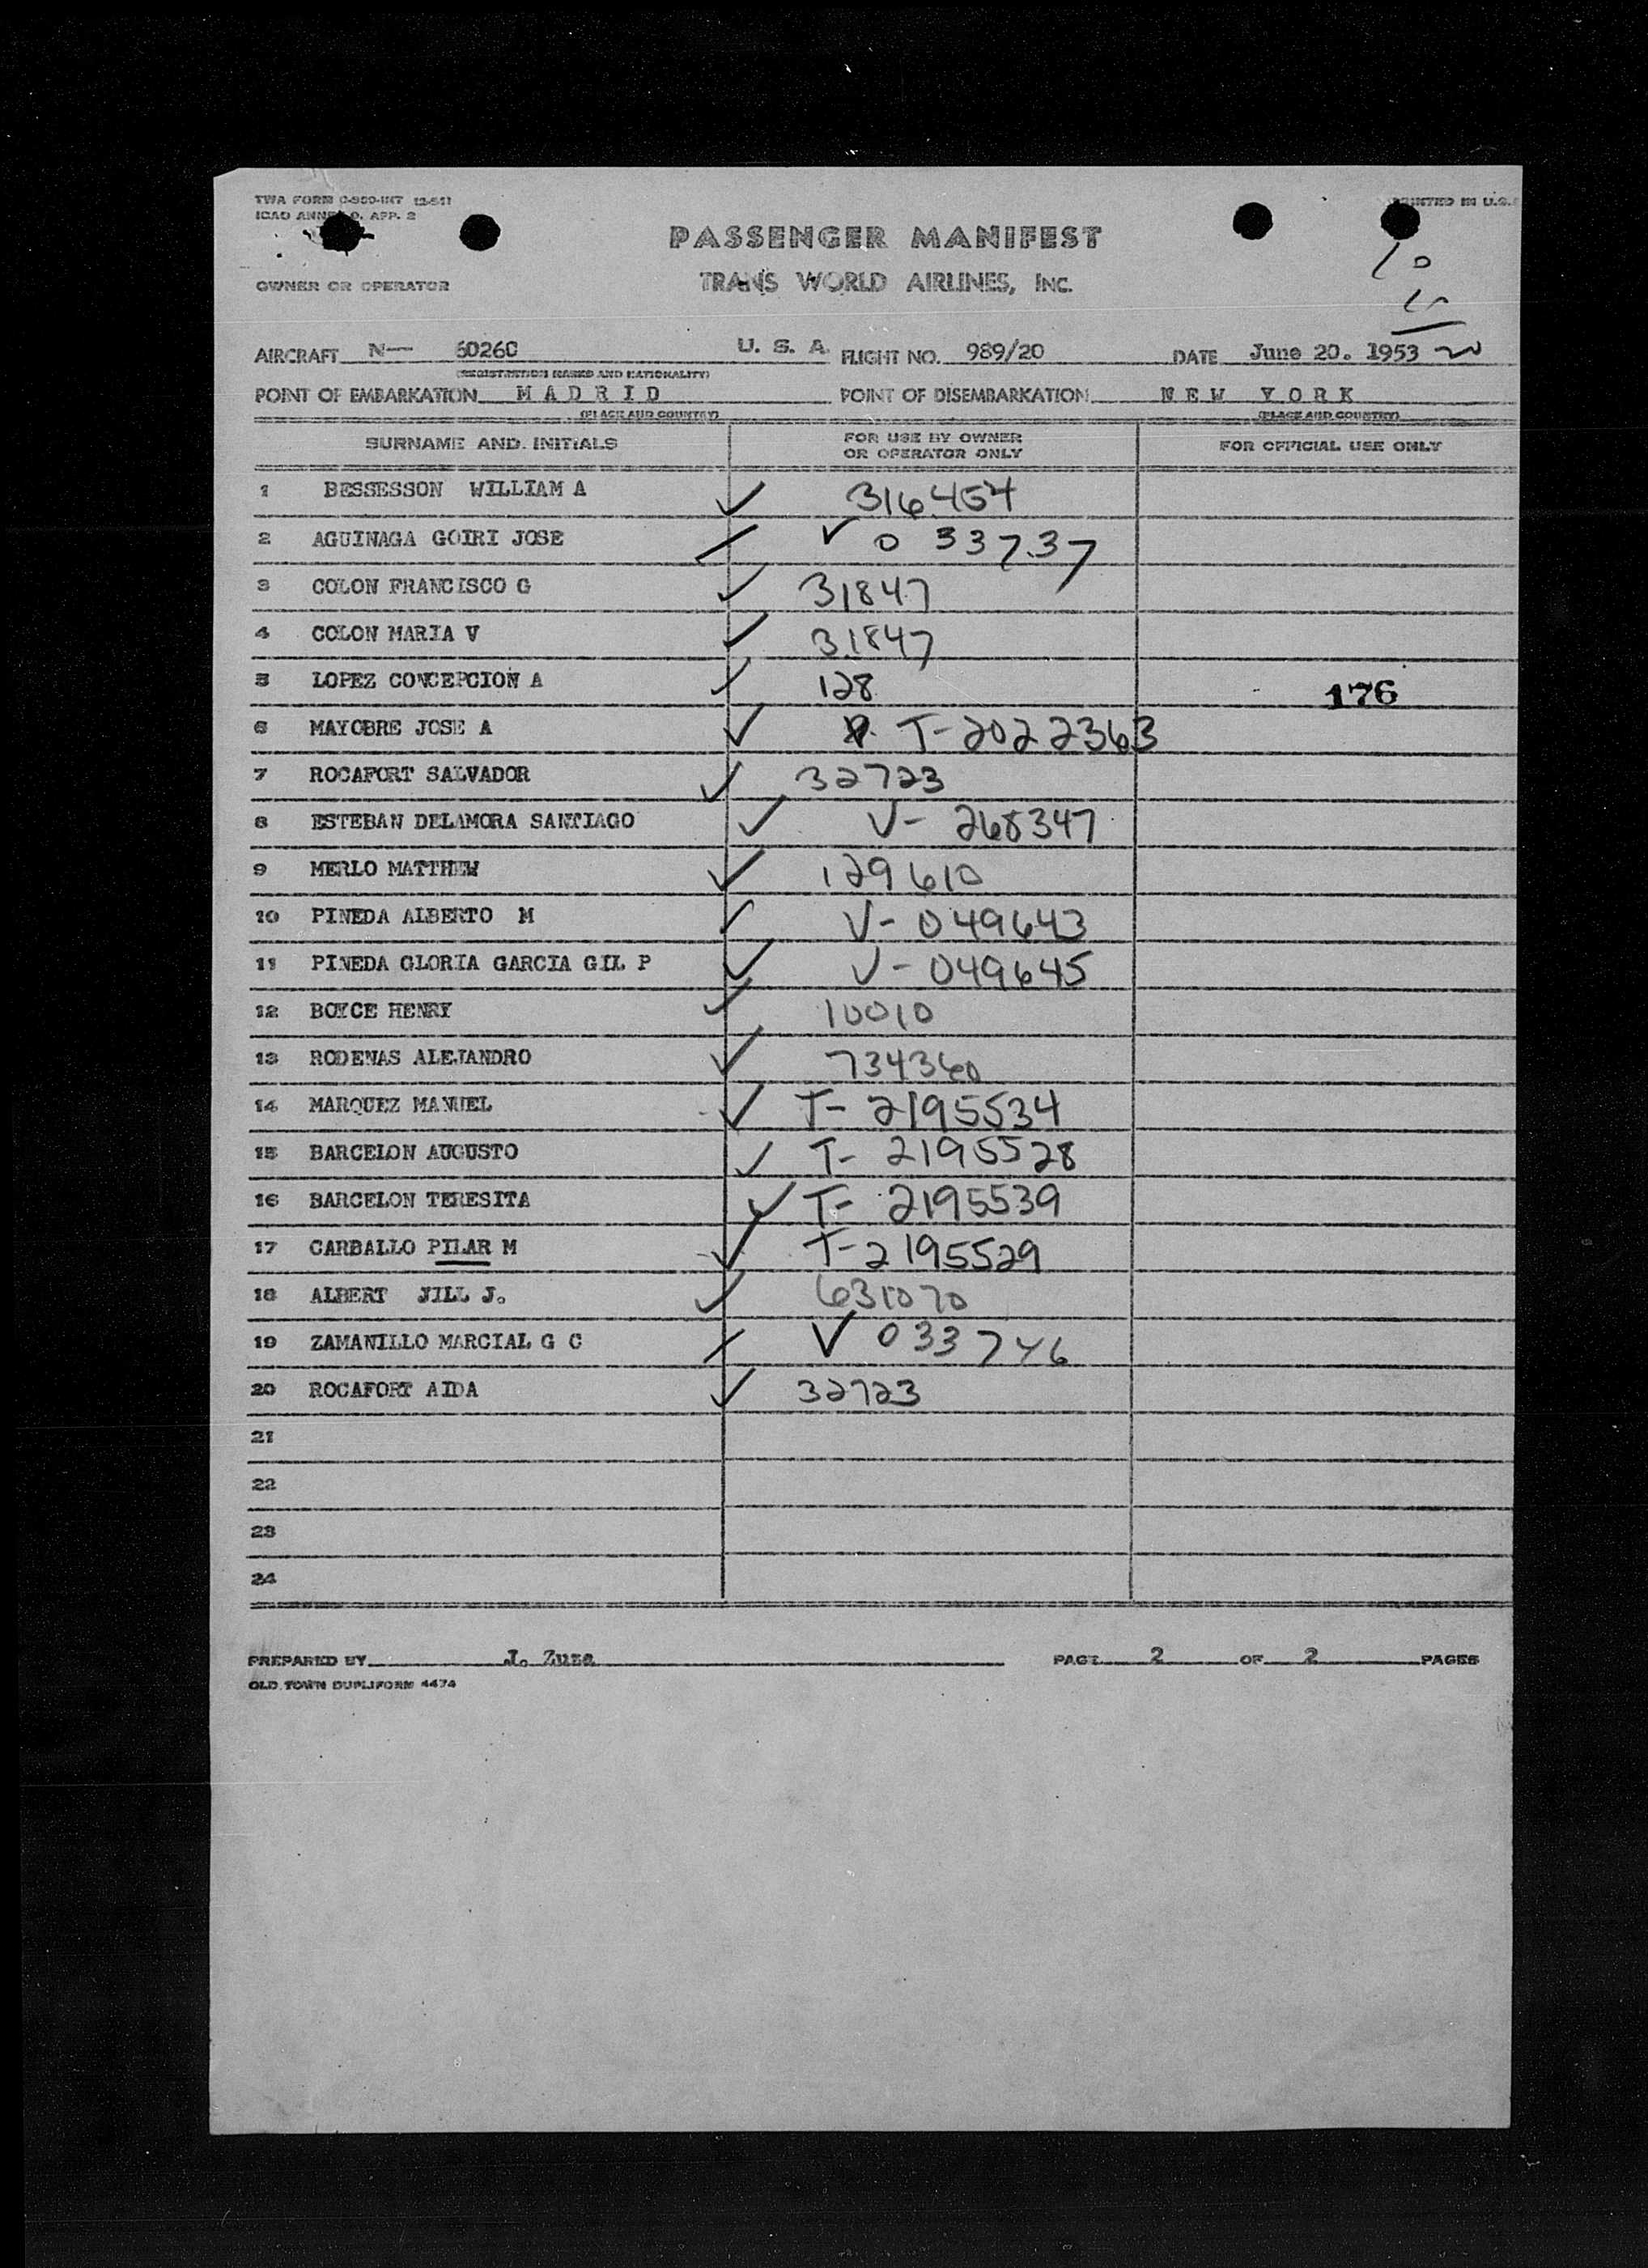 TWA FORM
ICAO ANNEX 9, APP. 2
PRINTED IN U.S.
PASSENGER MANIFEST
TRANS WORLD AIRLINES, INC.
OWNER OR OPERATOR
10
AIRCRAFT N— 60260 U. S. A. FLIGHT NO. 989/20 DATE June 20. 1953
(REGISTRATION MARKS AND NATIONALITY)
POINT OF EMBARKATION MADRID POINT OF DISEMBARKATION NEW YORK
(PLACE AND COUNTRY) (PLACE AND COUNTRY)
SURNAME AND INITIALS FOR USE BY OWNER OR OPERATOR ONLY FOR OFFICIAL USE ONLY
1 BESSESSON WILLIAM A ✓ 316454
2 AGUINAGA GOIRI JOSE ✓ V 033737
3 COLON FRANCISCO G ✓ 31847
4 COLON MARIA V ✓ 31847
5 LOPEZ CONCEPCION A ✓ 128 176
6 MAYOBRE JOSE A ✓ T-2022363
7 ROCAFORT SALVADOR ✓ 32723
8 ESTEBAN DELAMORA SANTIAGO ✓ V- 268347
9 MERLO MATTHEW ✓ 129610
10 PINEDA ALBERTO M ✓ V- 049643
11 PINEDA GLORIA GARCIA GIL P ✓ V- 049645
12 BOYCE HENRY ✓ 10010
13 RODENAS ALEJANDRO ✓ 734360
14 MARQUEZ MANUEL ✓ T- 2195534
15 BARCELON AUGUSTO ✓ T- 2195528
16 BARCELON TERESITA ✓ T- 2195539
17 CARBALLO PILAR M ✓ T-2195529
18 ALBERT JILL J. ✓ 631070
19 ZAMANILLO MARCIAL G C ✓ V 033746
20 ROCAFORT AIDA ✓ 32723
21
22
23
24
PREPARED BY J. Zuza PAGE 2 OF 2 PAGES
OLD TOWN DUPLIFORM 4474